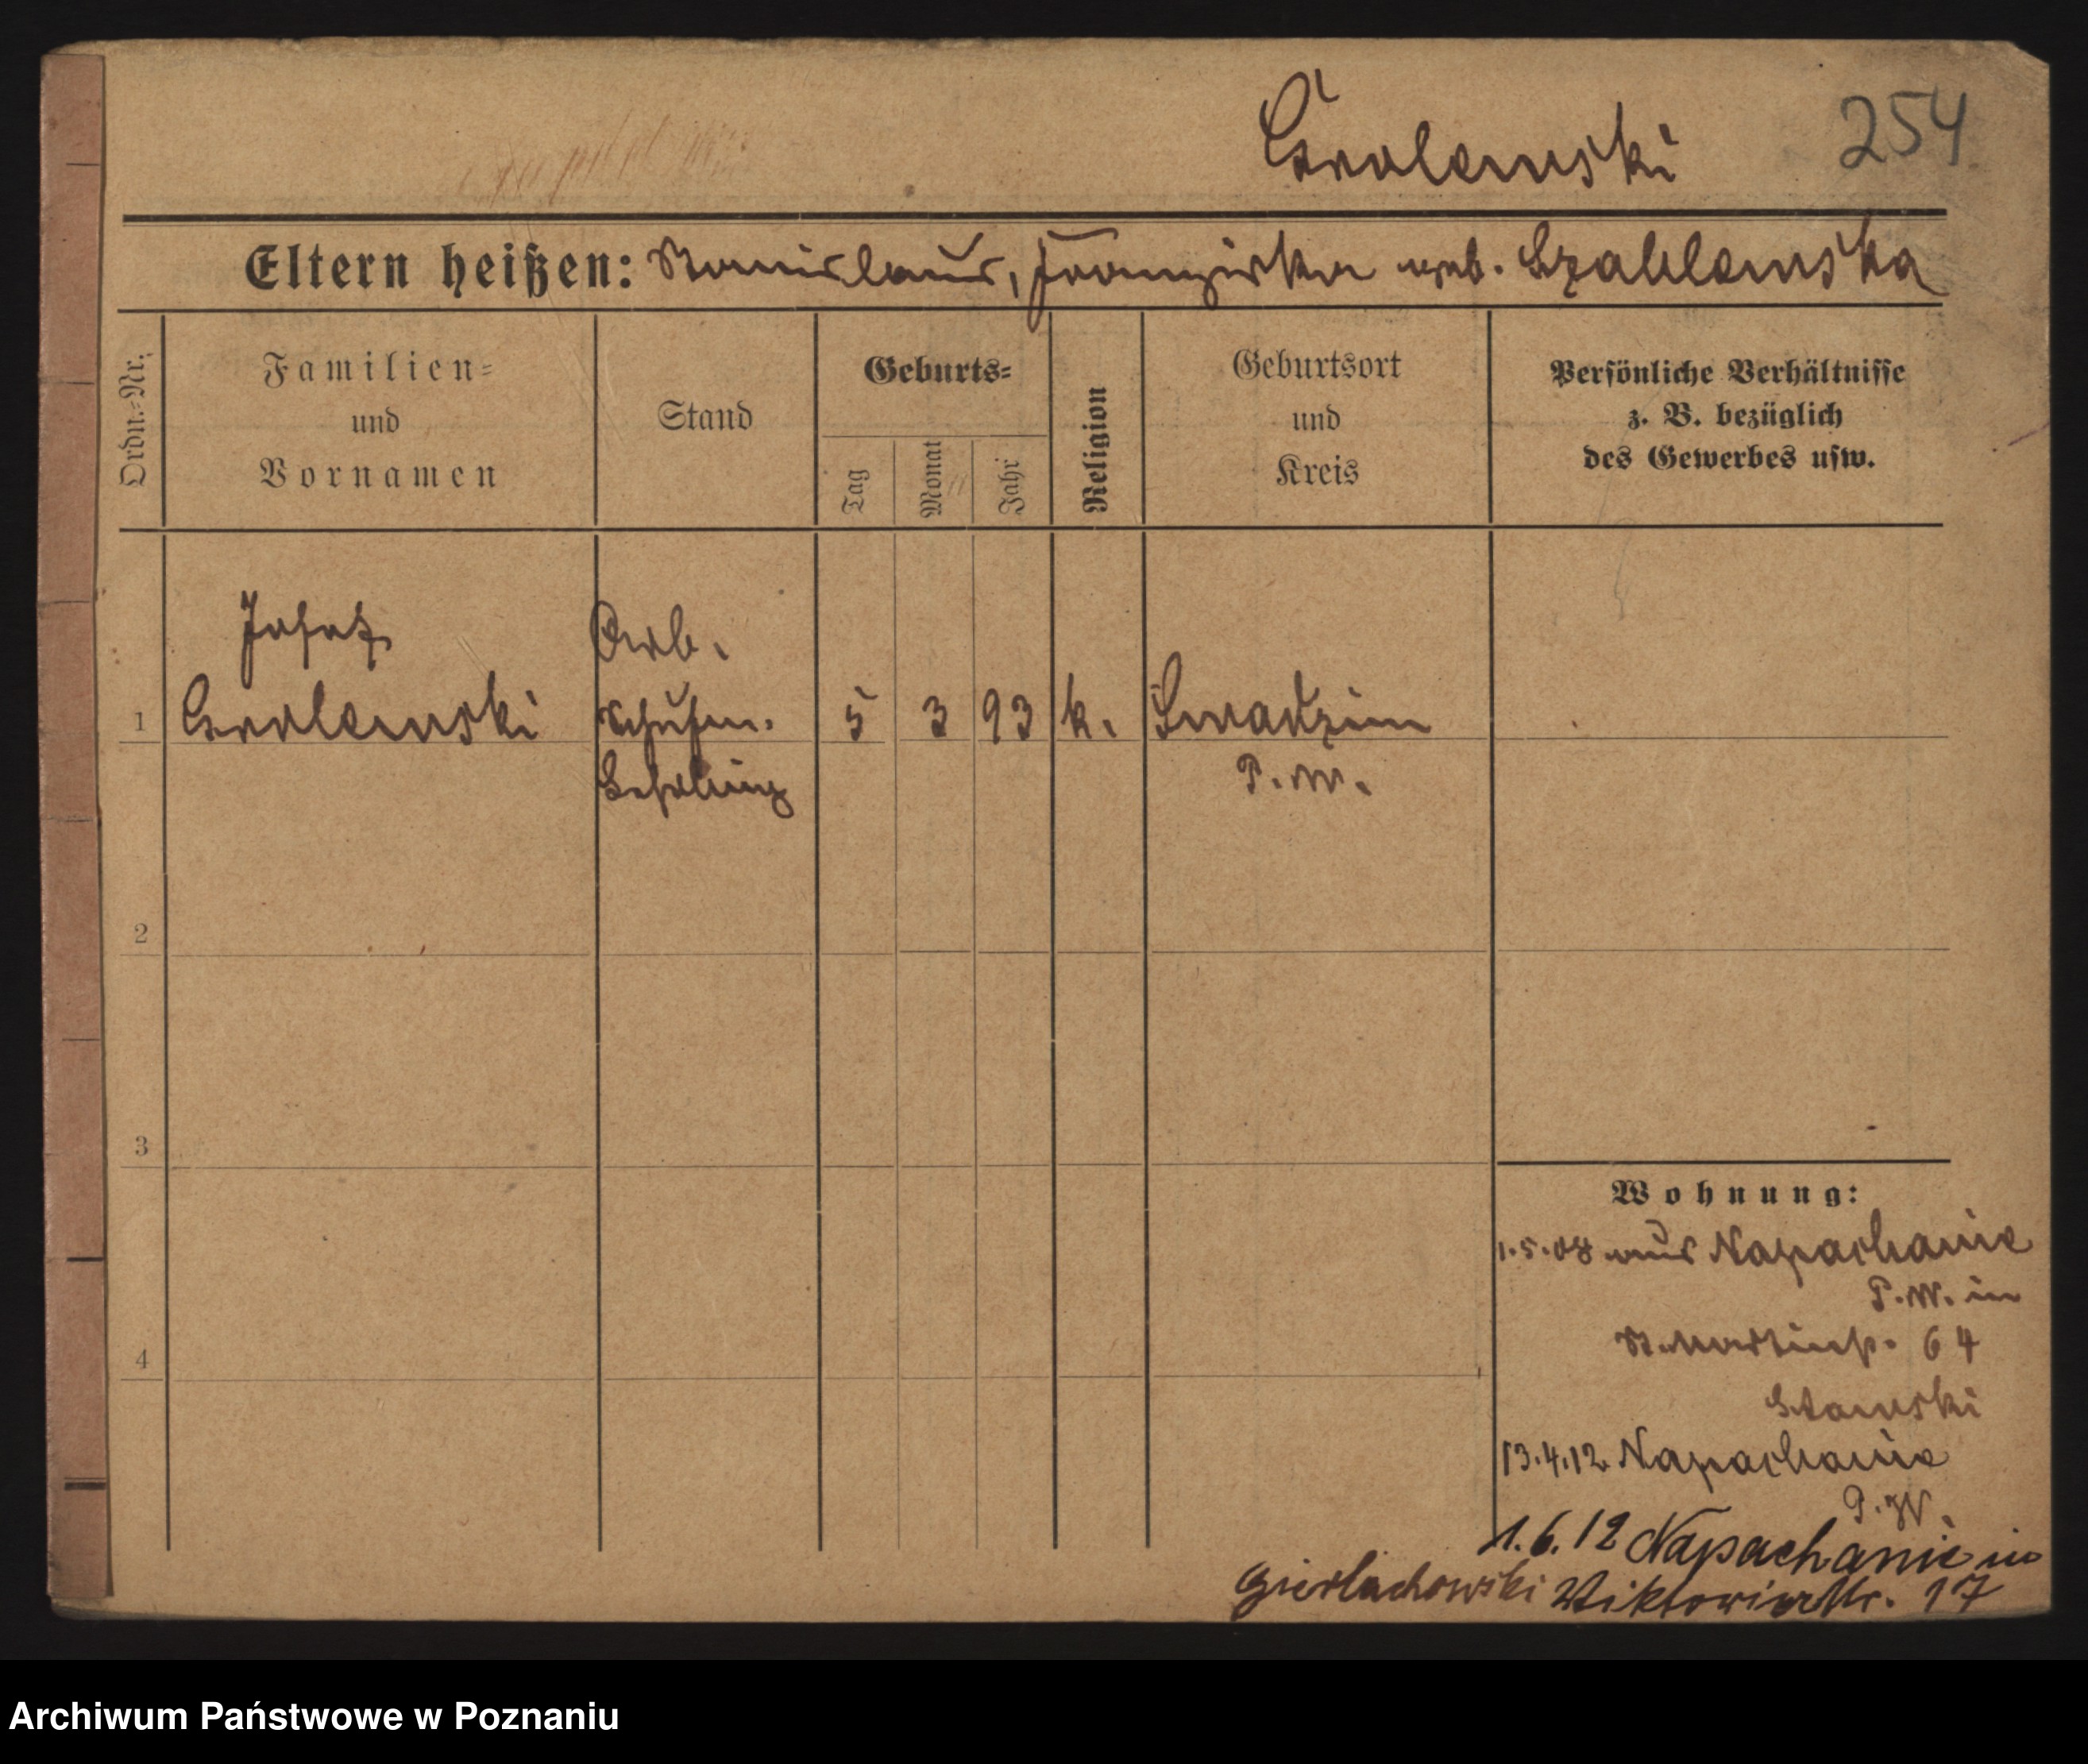 254
Eltern heißen: Stanislaus, Franziska geb.
Ordn.-Nr.
Familien-
und
Vornamen
Stand
Geburts-
Tag
Monat
Jahr
Religion
Geburtsort
und
Kreis
Persönliche Verhältnisse
z. B. bezüglich
des Gewerbes usw.
Josef
Arb.
1
5 3 93 k. Swadzim
P. W.
2
3
4
Wohnung:
1.5.08 aus Napachanie
P. W. in
St. Martinstr. 64
13.4.12 Napachanie
P. W.
1.6.12 Napachanie in
Gierlachowski Wiktoriastr. 17
Archiwum Państwowe w Poznaniu